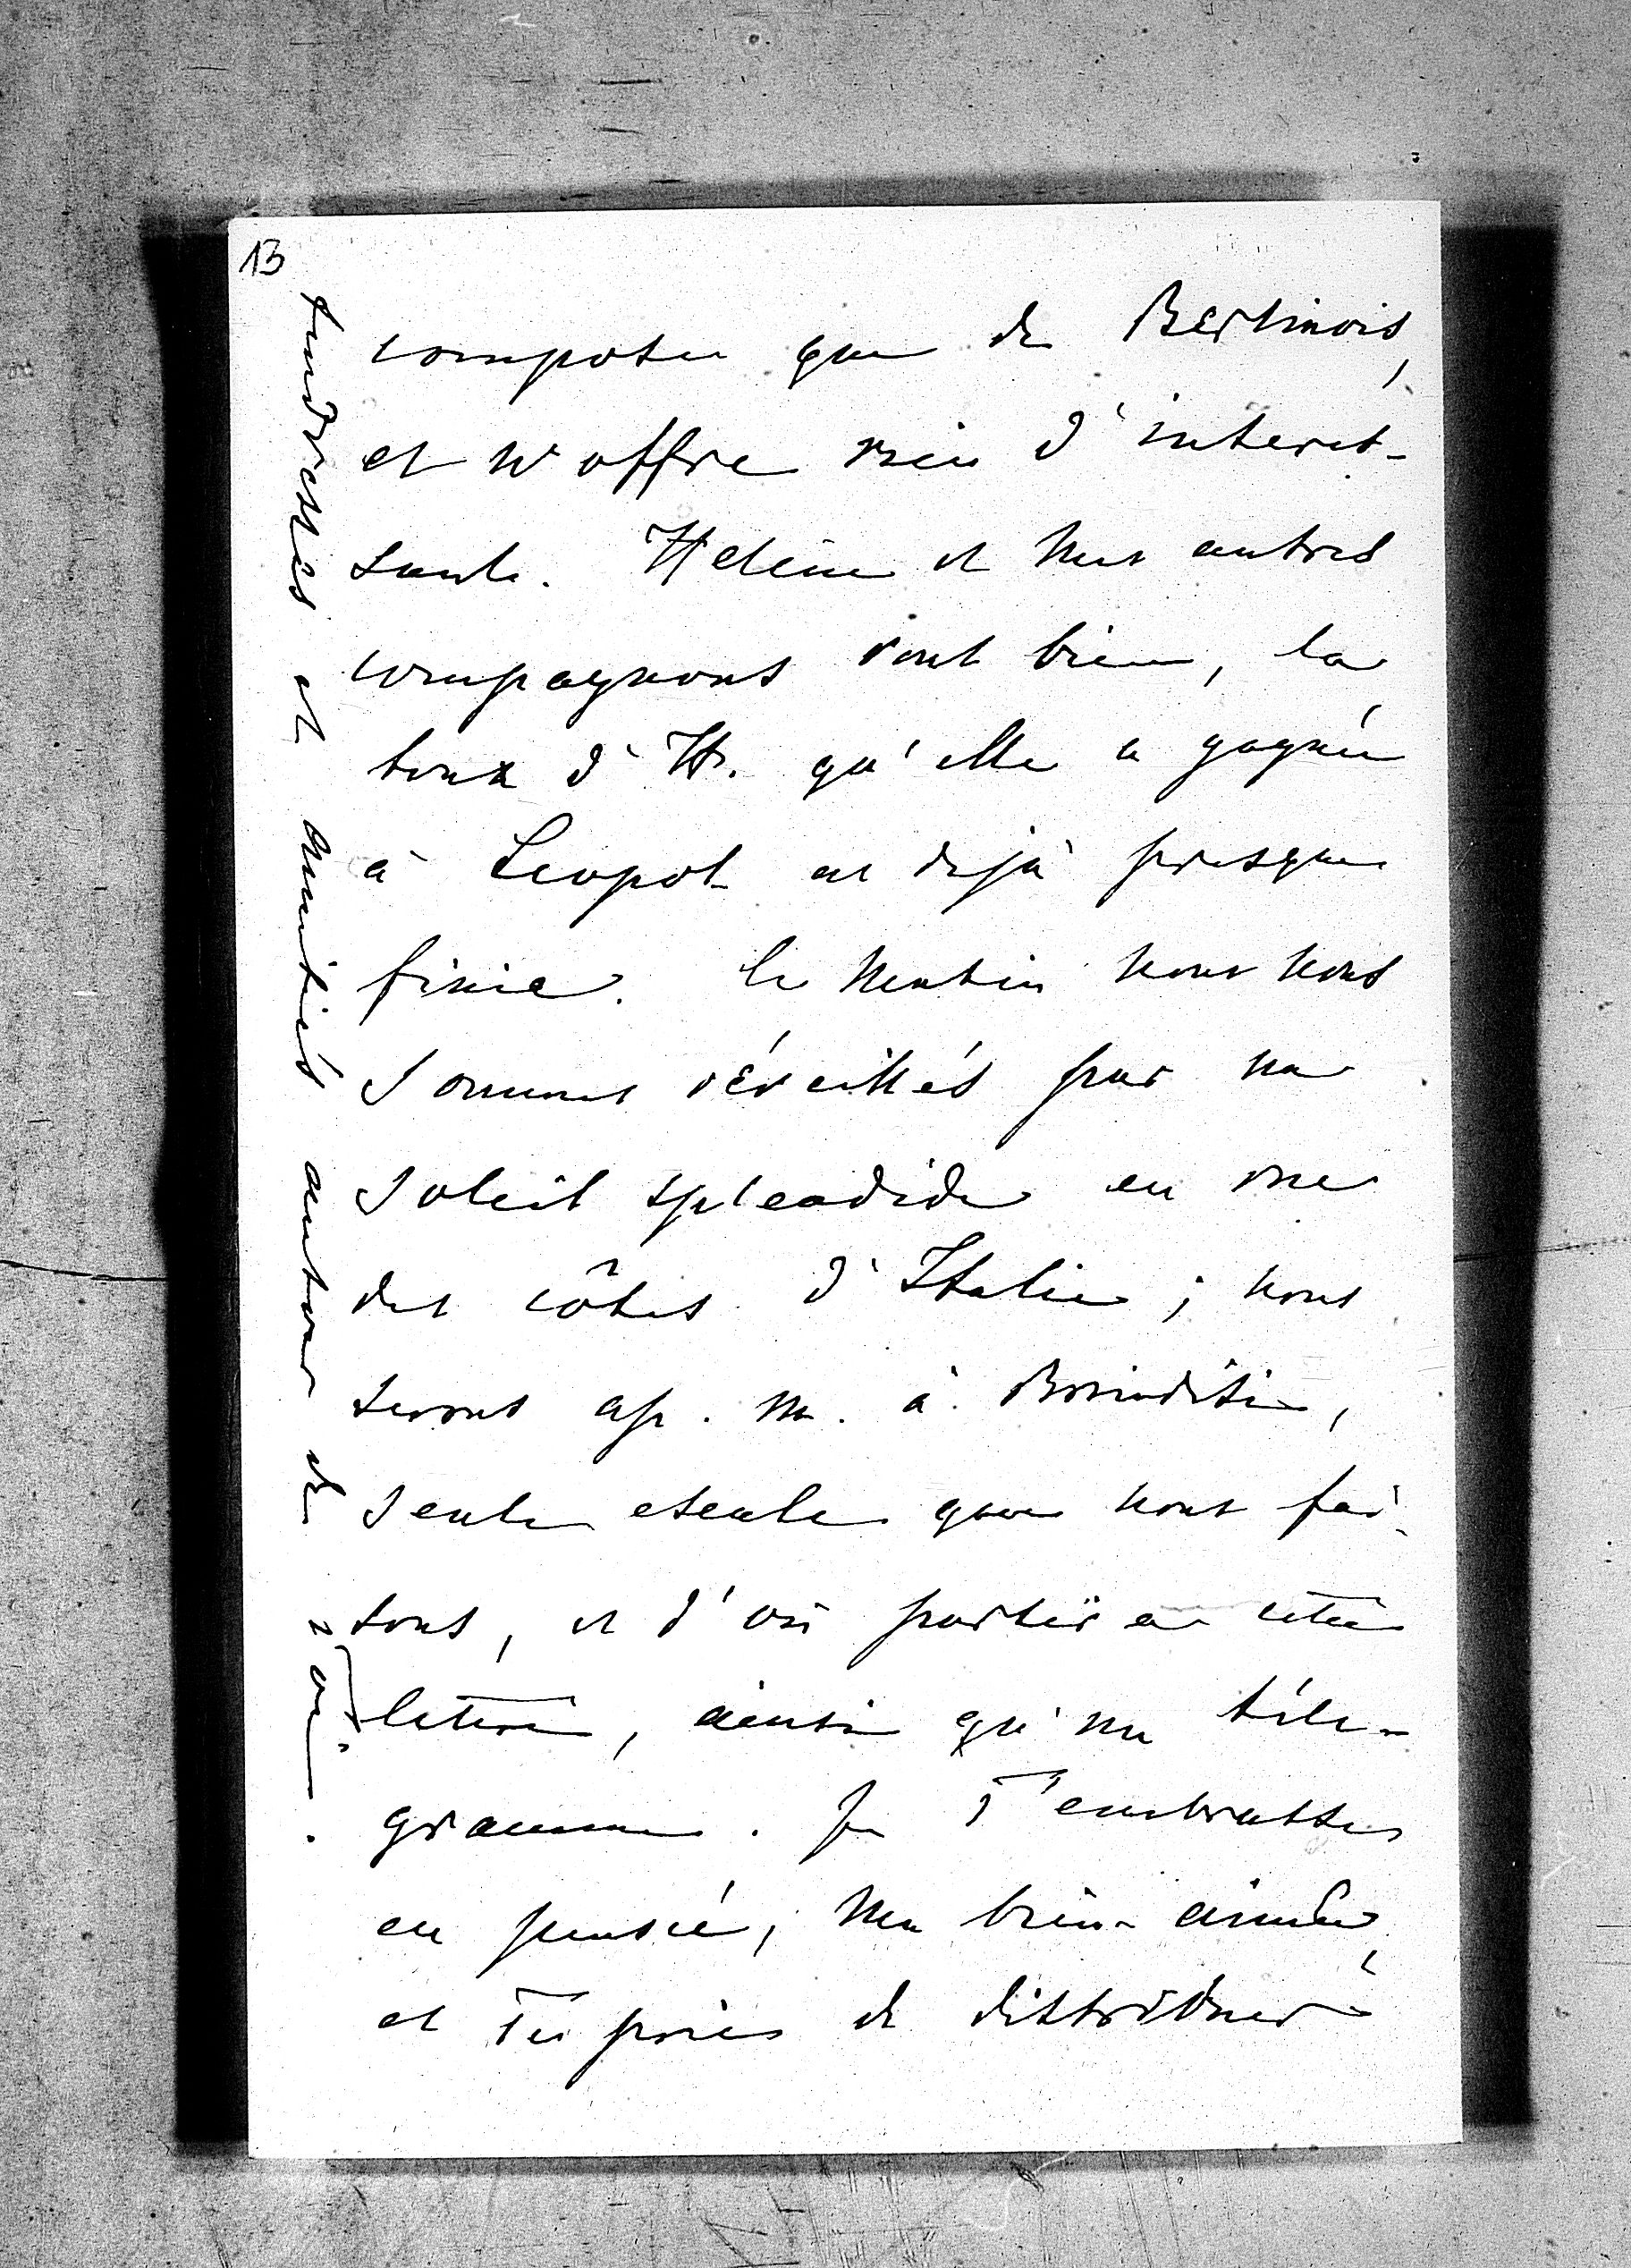 13
composée que de Berlinois,
et n'offre rien d'interes-
sante. Helene et mes autres
compagnons vont bien, la
toux d'H. qu'elle a gagnée
à Leopol- est dejà presque
finie. Ce matin nous nous
sommes réveillés par un
soleil splendide en vue
des côtes d'Italie; nous
serons ap. m. à Brindisi,
seule escale que nous fai-
sons, et d'où partira cette
lettre, ainsi qu'un télé-
gramme. Je T'embrasse
en pensée, ma bien-aimée,
et Te prie de distribuer
tendresses et amitiés autour de Toi.